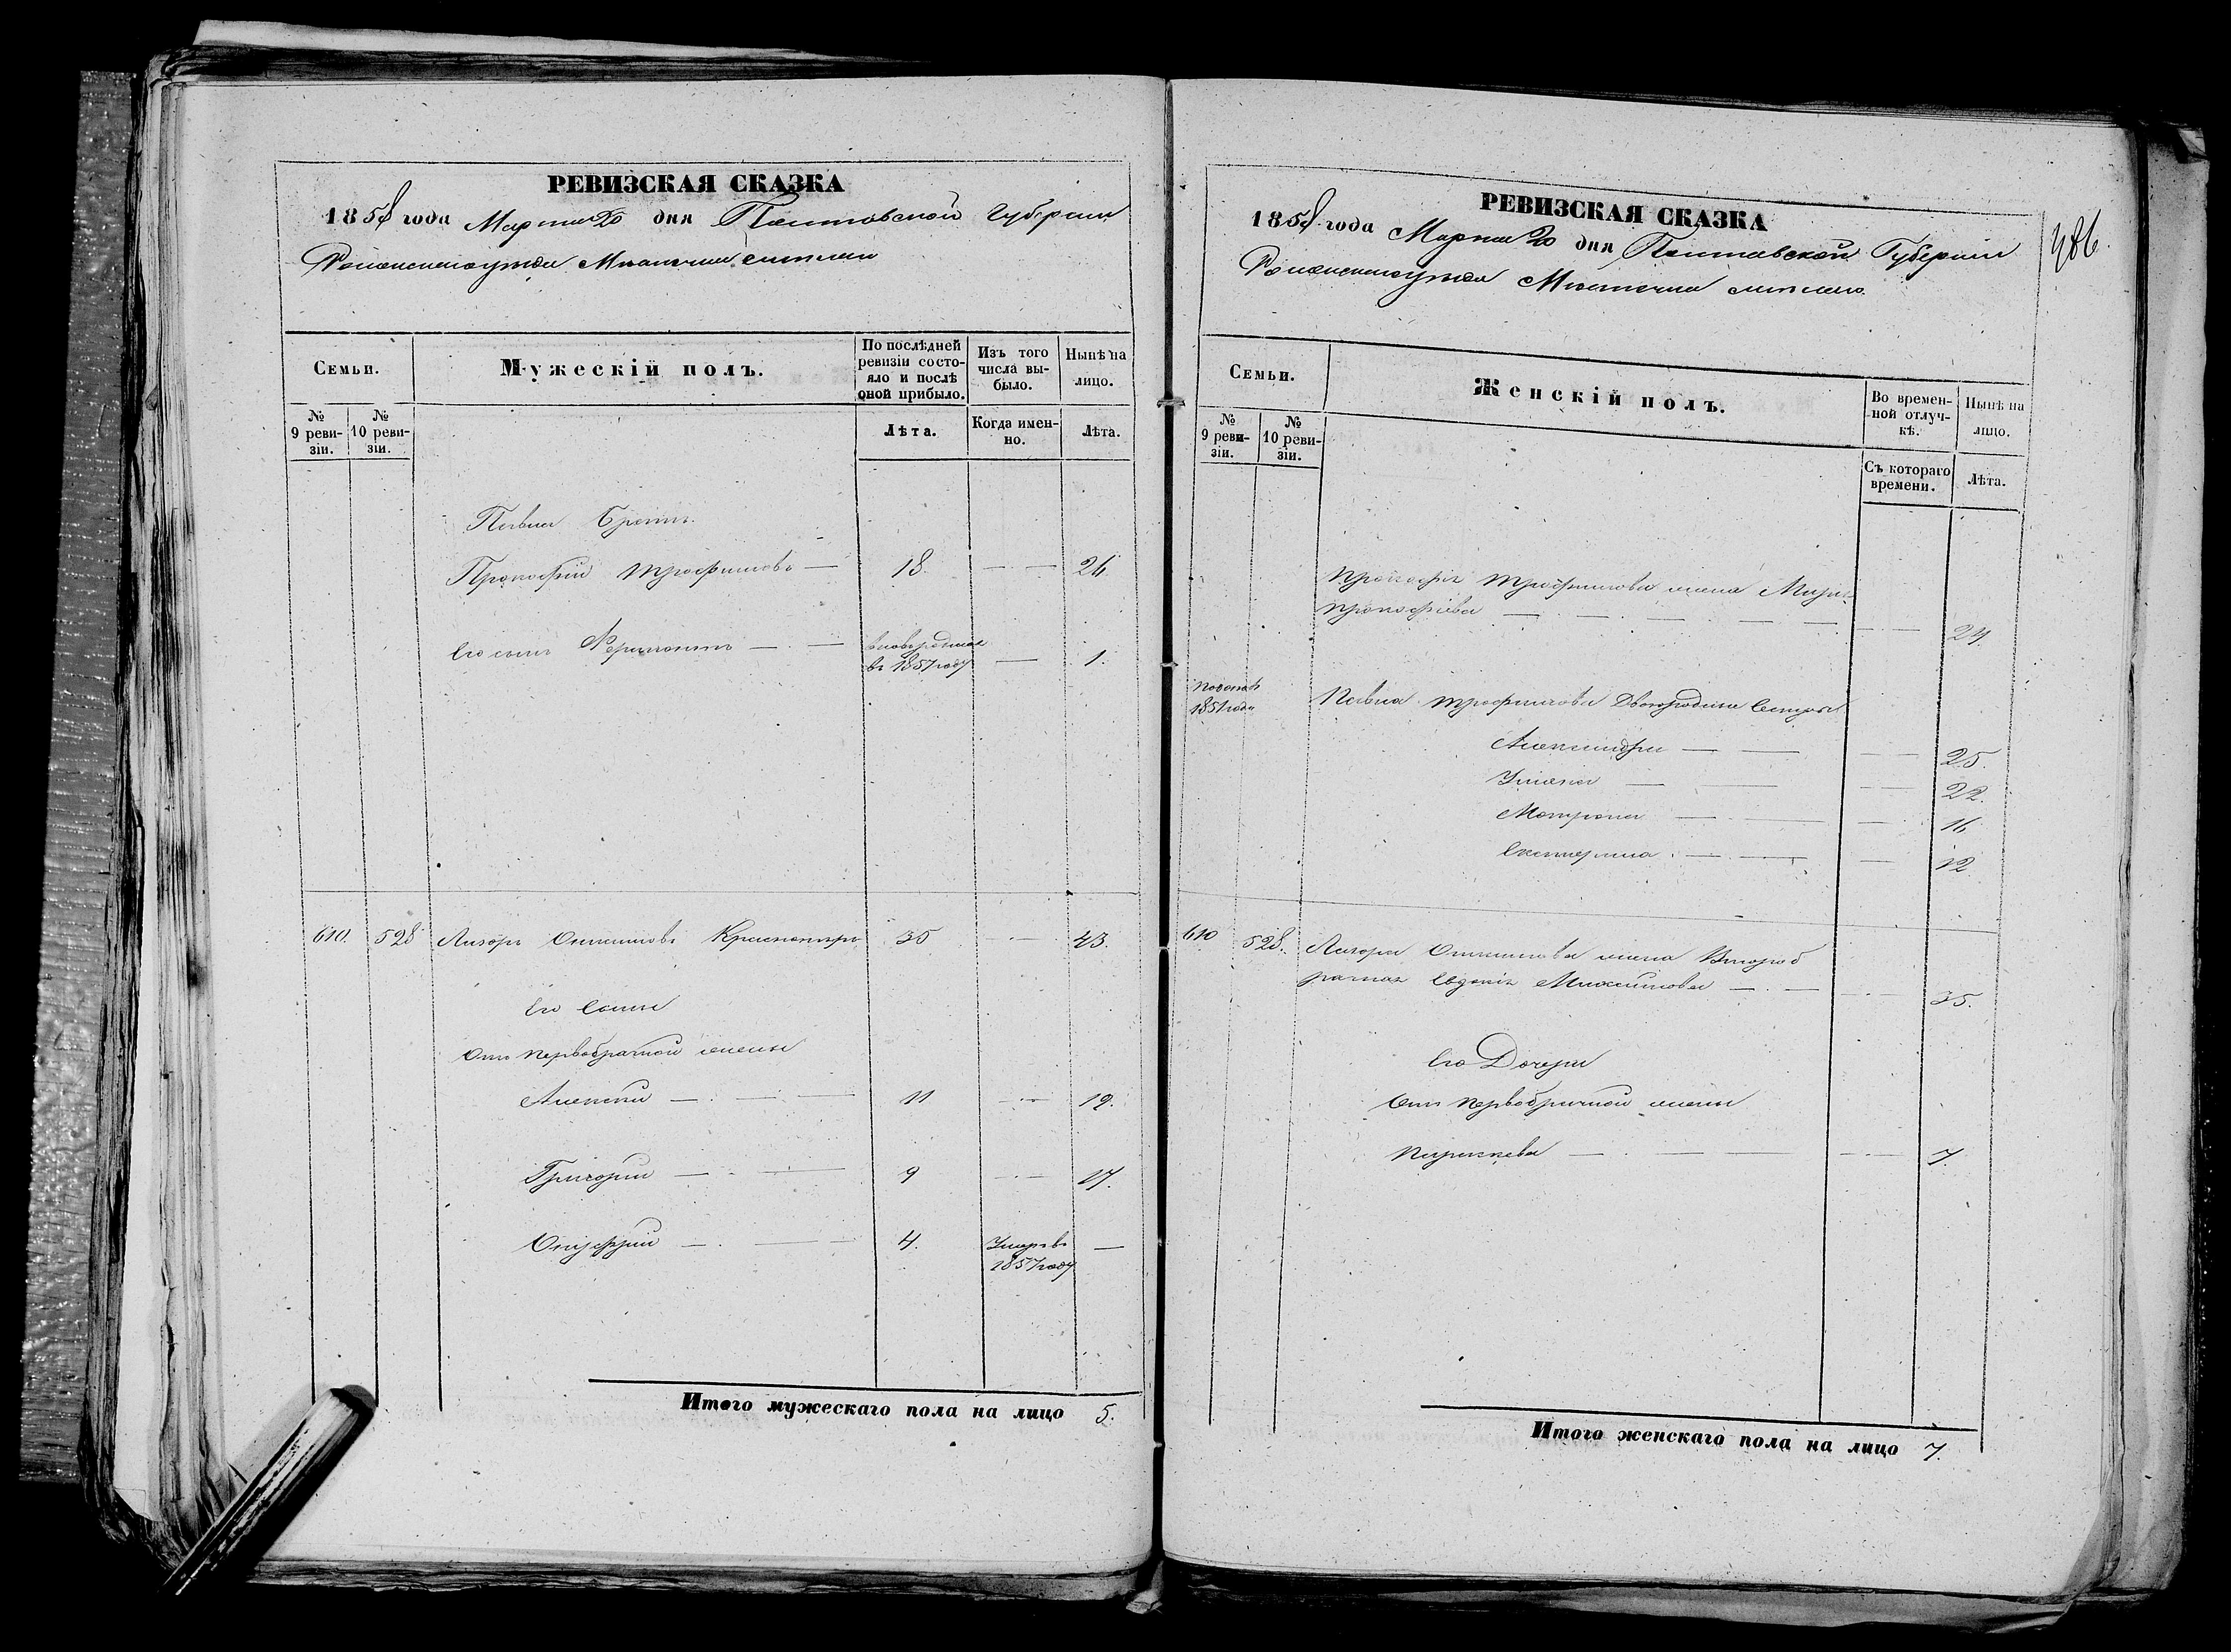 РЕВИЗСКАЯ СКАЗКА
1858 года Марта 20 дня Полтавской Губернии
Роменского уезда Местечка
Семьи.
Мужескій полъ.
По послѣдней ревизіи состояло и послѣ оной прибыло.
Изъ того числа выбыло.
Нынѣ на лицо.
№ 9 ревизіи.
№ 10 ревизіи.
Лѣта.
Когда именно.
Лѣта.
Павла братъ
Прокофій Трофимовъ — 18. — — 26.
Его сынъ Ферапонтъ — — вновь рожден
въ 1857 году — 1.
610. 528 Лазарь Красно 35 — 43.
Его Сыны
Отъ первобрачной жены
Алексей — — — 11 — 19.
Григорий — — 9 — 17.
Онуфрий — — 4. Умер въ —
1857 году
Итого мужескаго пола на лицо 5.
РЕВИЗСКАЯ СКАЗКА
486.
1858 года Марта 20 дня Полтавской Губернии
Роменского уезда Местечка
Семьи.
Женскій полъ.
Во временной отлучкѣ.
Нынѣ на лицо.
№ 9 ревизіи.
№ 10 ревизіи.
Съ котораго времени.
Лѣта.
Прокофія Трофимова жена Мария
Прокофіева — — — — — 24.
1851 года Павла Трофимова Двоюродные Сестры
Александра — — — 25.
Ульяна — — — 22.
Матрона — — — 16
Екатерина — — — 12
610 528. Лазаря жена Второб
рачная Евдокія Максимова — — 35.
Его Дочери
Отъ первобрачной жены
Параскева — — — 7.
Итого женскаго пола на лицо 7.